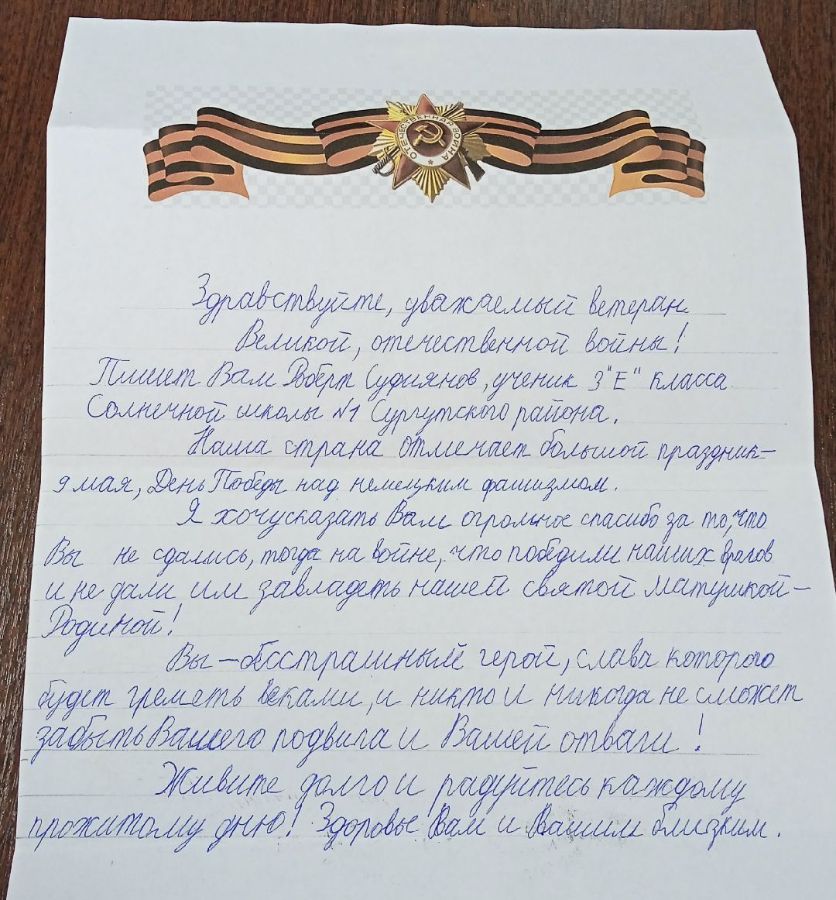 ОТЕЧЕСТВЕННАЯ ВОЙНА
Здравствуйте, уважаемый ветеран
Великой, отечественной войны!
Пишет Вам Роберт Суфиянов, ученик 3"Е" класса
Солнечной школы №1 Сургутского района.
Наша страна отмечает большой праздник-
9 мая, День Победы над немецким фашизмом.
Я хочу сказать Вам огромное спасибо за то, что
Вы не сдались, тогда на войне, что победили наших врагов
и не дали им завладеть нашей святой Матушкой-
Родиной!
Вы - бесстрашный герой, слава которого
будет греметь веками, и никто и никогда не сможет
забыть Вашего подвига и Вашей отваги!
Живите долго и радуйтесь каждому
прожитому дню! Здоровье Вам и Вашим близким.